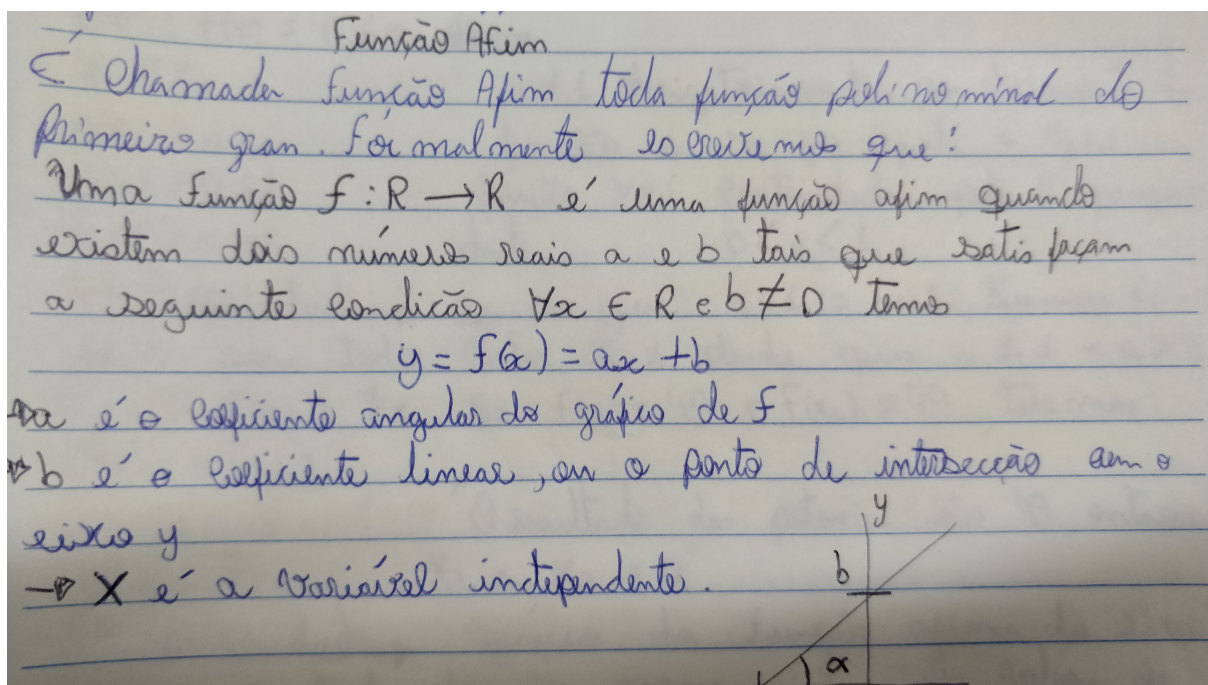 Função Afim
É Chamada função Afim toda função polinominal do
Primeiro grau. Formalmente escrevemos que:
Uma função f : R → R é uma função afim quando
existem dois números reais a e b tais que satisfaçam
a seguinte condicão ∀x ∈ R e b ≠ 0 temos
y = f(x) = ax + b
→ a é o coeficiente angular do gráfico de f
→ b é o coeficiente linear, ou o ponto de intersecção com o
eixo y
→ X é a variável independente.
y
b
α